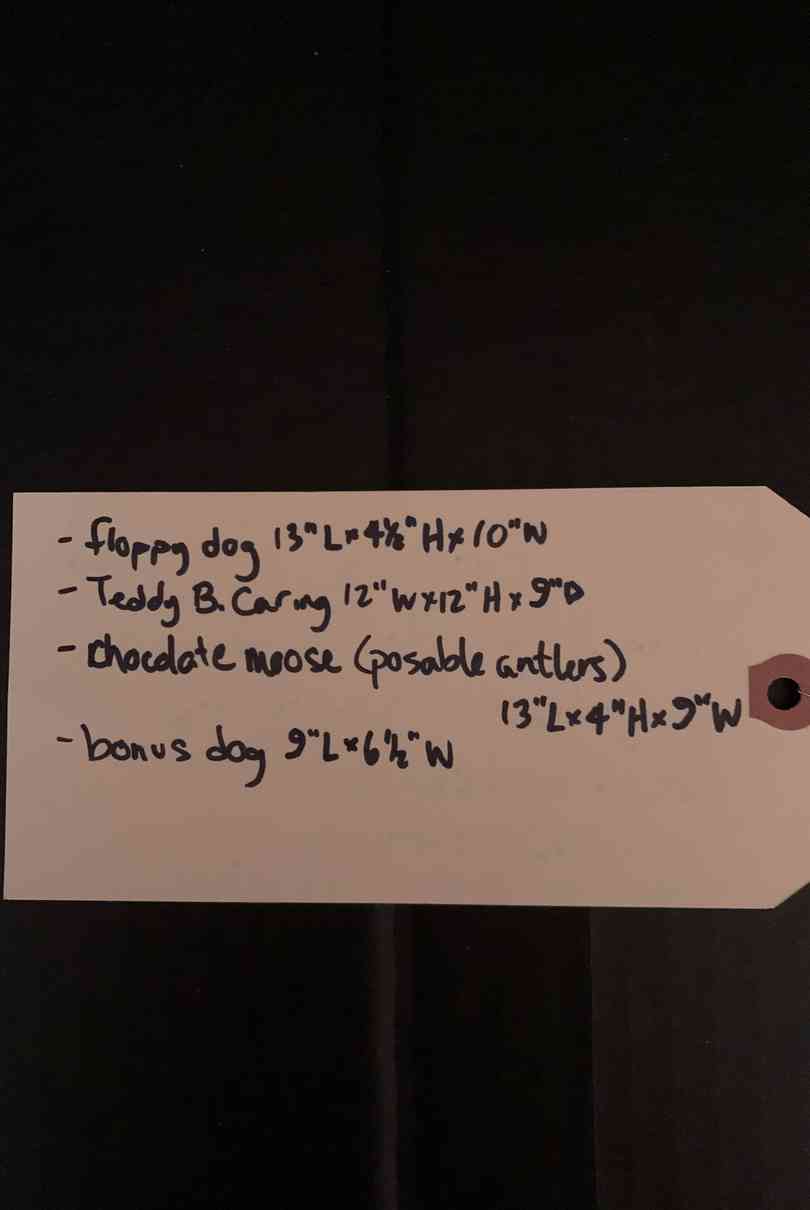 - floppy dog 13"L×4½"H×10"W
- Teddy B. Caring 12"W×12"H×9"D
- chocolate moose (posable antlers)
13"L×4"H×9"W
- bonus dog 9"L×6½"W